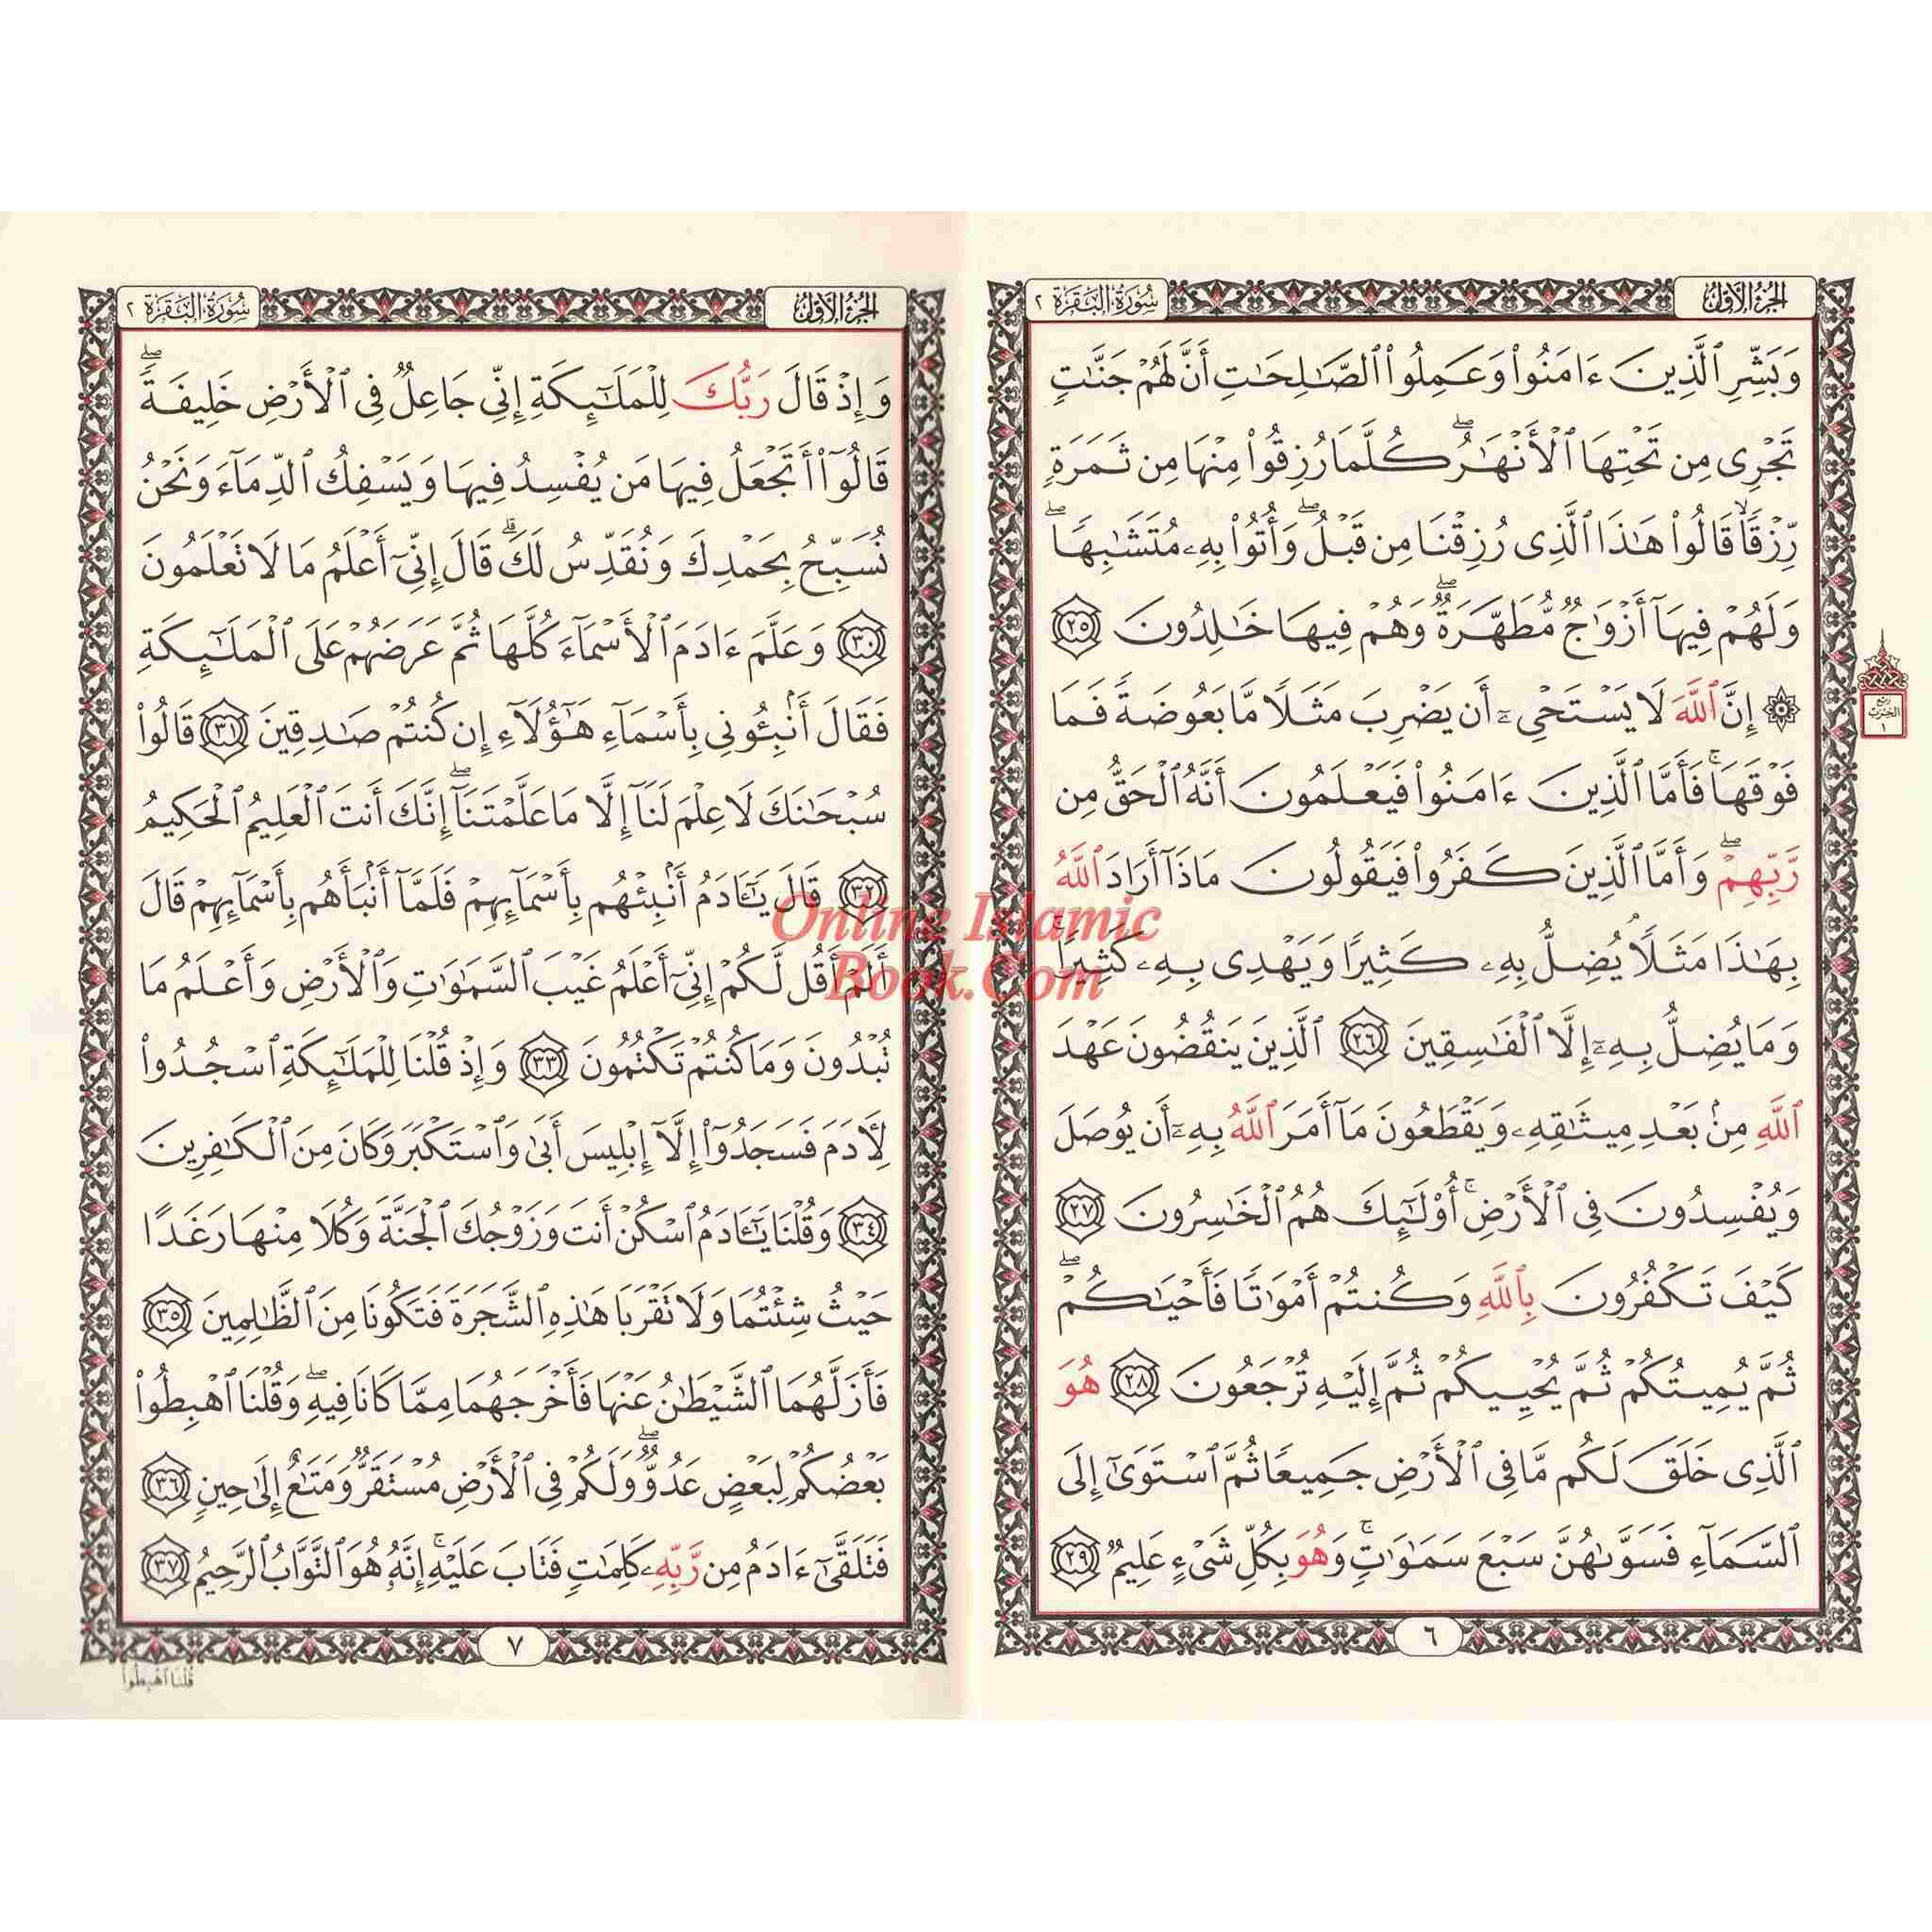 الجزء الأول
سورة البقرة ٢
وَبَشِّرِ ٱلَّذِينَ ءَامَنُوا۟ وَعَمِلُوا۟ ٱلصَّـٰلِحَـٰتِ أَنَّ لَهُمْ جَنَّـٰتٍ
تَجْرِى مِن تَحْتِهَا ٱلْأَنْهَـٰرُ ۖ كُلَّمَا رُزِقُوا۟ مِنْهَا مِن ثَمَرَةٍ
رِّزْقًا ۙ قَالُوا۟ هَـٰذَا ٱلَّذِى رُزِقْنَا مِن قَبْلُ ۖ وَأُتُوا۟ بِهِۦ مُتَشَـٰبِهًا ۖ
وَلَهُمْ فِيهَآ أَزْوَٰجٌ مُّطَهَّرَةٌ ۖ وَهُمْ فِيهَا خَـٰلِدُونَ ٢٥
۞ إِنَّ ٱللَّهَ لَا يَسْتَحْىِۦٓ أَن يَضْرِبَ مَثَلًا مَّا بَعُوضَةً فَمَا
فَوْقَهَا ۚ فَأَمَّا ٱلَّذِينَ ءَامَنُوا۟ فَيَعْلَمُونَ أَنَّهُ ٱلْحَقُّ مِن
رَّبِّهِمْ ۖ وَأَمَّا ٱلَّذِينَ كَفَرُوا۟ فَيَقُولُونَ مَاذَآ أَرَادَ ٱللَّهُ
بِهَـٰذَا مَثَلًا ۘ يُضِلُّ بِهِۦ كَثِيرًا وَيَهْدِى بِهِۦ كَثِيرًا ۚ
وَمَا يُضِلُّ بِهِۦٓ إِلَّا ٱلْفَـٰسِقِينَ ٢٦ ٱلَّذِينَ يَنقُضُونَ عَهْدَ
ٱللَّهِ مِنۢ بَعْدِ مِيثَـٰقِهِۦ وَيَقْطَعُونَ مَآ أَمَرَ ٱللَّهُ بِهِۦٓ أَن يُوصَلَ
وَيُفْسِدُونَ فِى ٱلْأَرْضِ ۚ أُو۟لَـٰٓئِكَ هُمُ ٱلْخَـٰسِرُونَ ٢٧
كَيْفَ تَكْفُرُونَ بِٱللَّهِ وَكُنتُمْ أَمْوَٰتًا فَأَحْيَـٰكُمْ ۖ
ثُمَّ يُمِيتُكُمْ ثُمَّ يُحْيِيكُمْ ثُمَّ إِلَيْهِ تُرْجَعُونَ ٢٨ هُوَ
ٱلَّذِى خَلَقَ لَكُم مَّا فِى ٱلْأَرْضِ جَمِيعًا ثُمَّ ٱسْتَوَىٰٓ إِلَى
ٱلسَّمَآءِ فَسَوَّىٰهُنَّ سَبْعَ سَمَـٰوَٰتٍ ۚ وَهُوَ بِكُلِّ شَىْءٍ عَلِيمٌ ٢٩
٦
ربع
الحزب
١
الجزء الأول
سورة البقرة ٢
وَإِذْ قَالَ رَبُّكَ لِلْمَلَـٰٓئِكَةِ إِنِّى جَاعِلٌ فِى ٱلْأَرْضِ خَلِيفَةً ۖ
قَالُوٓا۟ أَتَجْعَلُ فِيهَا مَن يُفْسِدُ فِيهَا وَيَسْفِكُ ٱلدِّمَآءَ وَنَحْنُ
نُسَبِّحُ بِحَمْدِكَ وَنُقَدِّسُ لَكَ ۖ قَالَ إِنِّىٓ أَعْلَمُ مَا لَا تَعْلَمُونَ
٣٠ وَعَلَّمَ ءَادَمَ ٱلْأَسْمَآءَ كُلَّهَا ثُمَّ عَرَضَهُمْ عَلَى ٱلْمَلَـٰٓئِكَةِ
فَقَالَ أَنۢبِـُٔونِى بِأَسْمَآءِ هَـٰٓؤُلَآءِ إِن كُنتُمْ صَـٰدِقِينَ ٣١ قَالُوا۟
سُبْحَـٰنَكَ لَا عِلْمَ لَنَآ إِلَّا مَا عَلَّمْتَنَآ ۖ إِنَّكَ أَنتَ ٱلْعَلِيمُ ٱلْحَكِيمُ
٣٢ قَالَ يَـٰٓـَٔادَمُ أَنۢبِئْهُم بِأَسْمَآئِهِمْ ۖ فَلَمَّآ أَنۢبَأَهُم بِأَسْمَآئِهِمْ قَالَ
أَلَمْ أَقُل لَّكُمْ إِنِّىٓ أَعْلَمُ غَيْبَ ٱلسَّمَـٰوَٰتِ وَٱلْأَرْضِ وَأَعْلَمُ مَا
تُبْدُونَ وَمَا كُنتُمْ تَكْتُمُونَ ٣٣ وَإِذْ قُلْنَا لِلْمَلَـٰٓئِكَةِ ٱسْجُدُوا۟
لِـَٔادَمَ فَسَجَدُوٓا۟ إِلَّآ إِبْلِيسَ أَبَىٰ وَٱسْتَكْبَرَ وَكَانَ مِنَ ٱلْكَـٰفِرِينَ
٣٤ وَقُلْنَا يَـٰٓـَٔادَمُ ٱسْكُنْ أَنتَ وَزَوْجُكَ ٱلْجَنَّةَ وَكُلَا مِنْهَا رَغَدًا
حَيْثُ شِئْتُمَا وَلَا تَقْرَبَا هَـٰذِهِ ٱلشَّجَرَةَ فَتَكُونَا مِنَ ٱلظَّـٰلِمِينَ ٣٥
فَأَزَلَّهُمَا ٱلشَّيْطَـٰنُ عَنْهَا فَأَخْرَجَهُمَا مِمَّا كَانَا فِيهِ ۖ وَقُلْنَا ٱهْبِطُوا۟
بَعْضُكُمْ لِبَعْضٍ عَدُوٌّ ۖ وَلَكُمْ فِى ٱلْأَرْضِ مُسْتَقَرٌّ وَمَتَـٰعٌ إِلَىٰ حِينٍ ٣٦
فَتَلَقَّىٰٓ ءَادَمُ مِن رَّبِّهِۦ كَلِمَـٰتٍ فَتَابَ عَلَيْهِ ۚ إِنَّهُۥ هُوَ ٱلتَّوَّابُ ٱلرَّحِيمُ ٣٧
٧
قُلْنَا ٱهْبِطُوا۟
Online Islamic
Book.Com